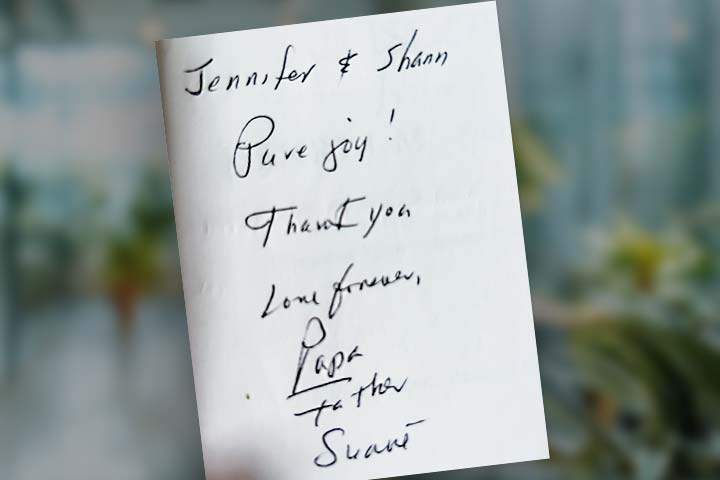 Jennifer & Shann
Pure joy!
Thank you
Love forever,
Papa
father
Suavé